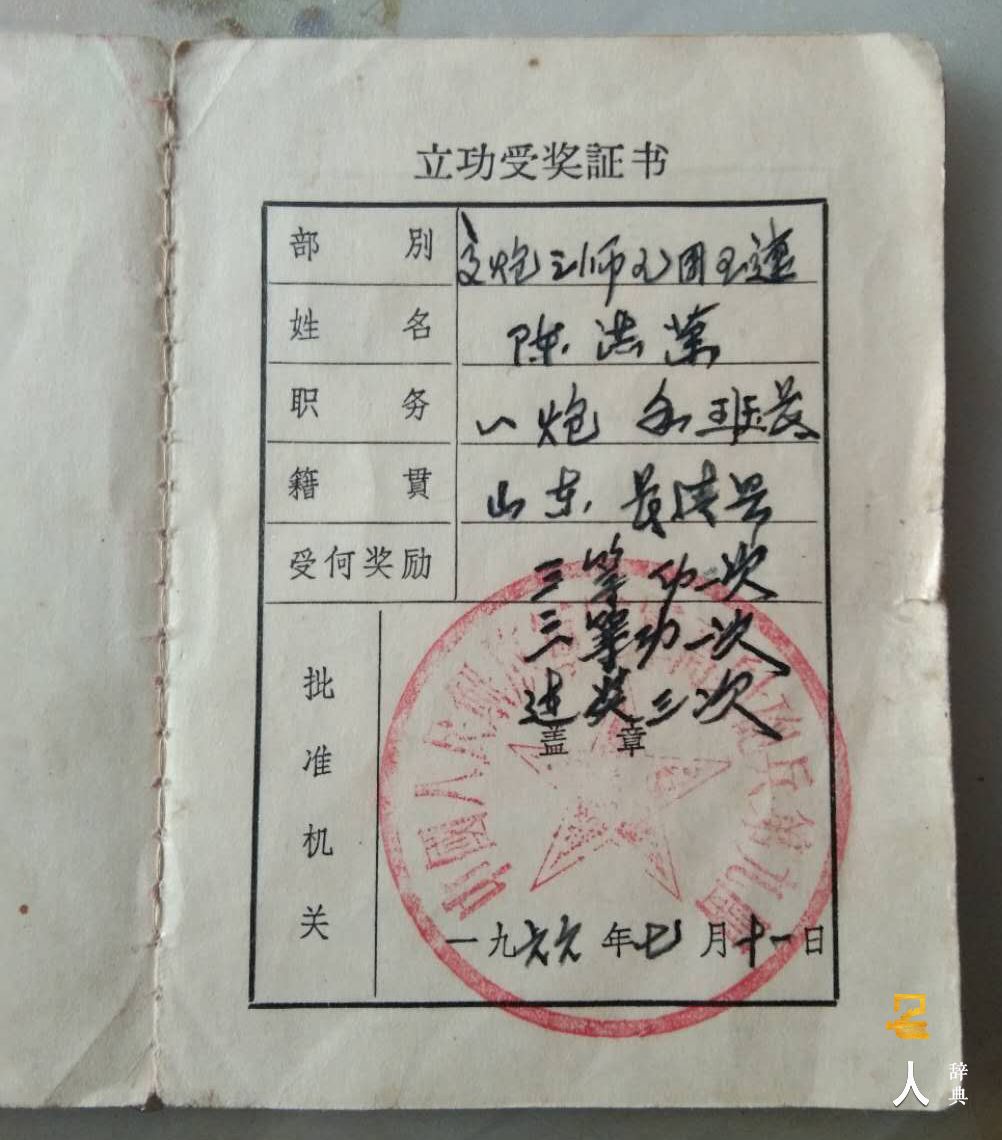 立功受奖証书
部别 炮三师九团五連
姓名 陈洪業
职务 一炮 付班長
籍貫 山东 長清县
受何奖励 三等功一次
三等功一次
过奖三次
盖章
批准机关
中國人民
兵第九團
一九六六年七月十一日
人
辞典